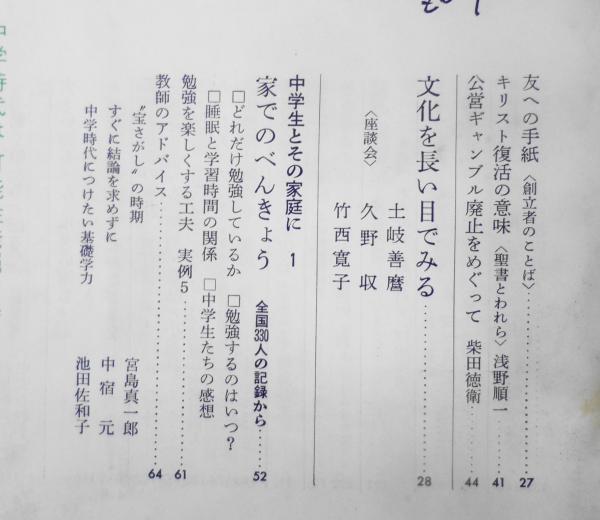 友への手紙〈創立者のことば〉……27
キリスト復活の意味〈聖書とわれら〉浅野順一……41
公営ギャンブル廃止をめぐって 柴田徳衛……44
文化を長い目でみる……28
〈座談会〉
土岐善麿
久野 収
竹西寛子
中学生とその家庭に 1
家でのべんきょう 全国330人の記録から……52
□どれだけ勉強しているか □勉強するのはいつ?
□睡眠と学習時間の関係 □中学生たちの感想
勉強を楽しくする工夫 実例5……61
教師のアドバイス……64
“宝さがし”の時期 宮島真一郎
すぐに結論を求めずに 中宿 元
中学時代につけたい基礎学力 池田佐和子